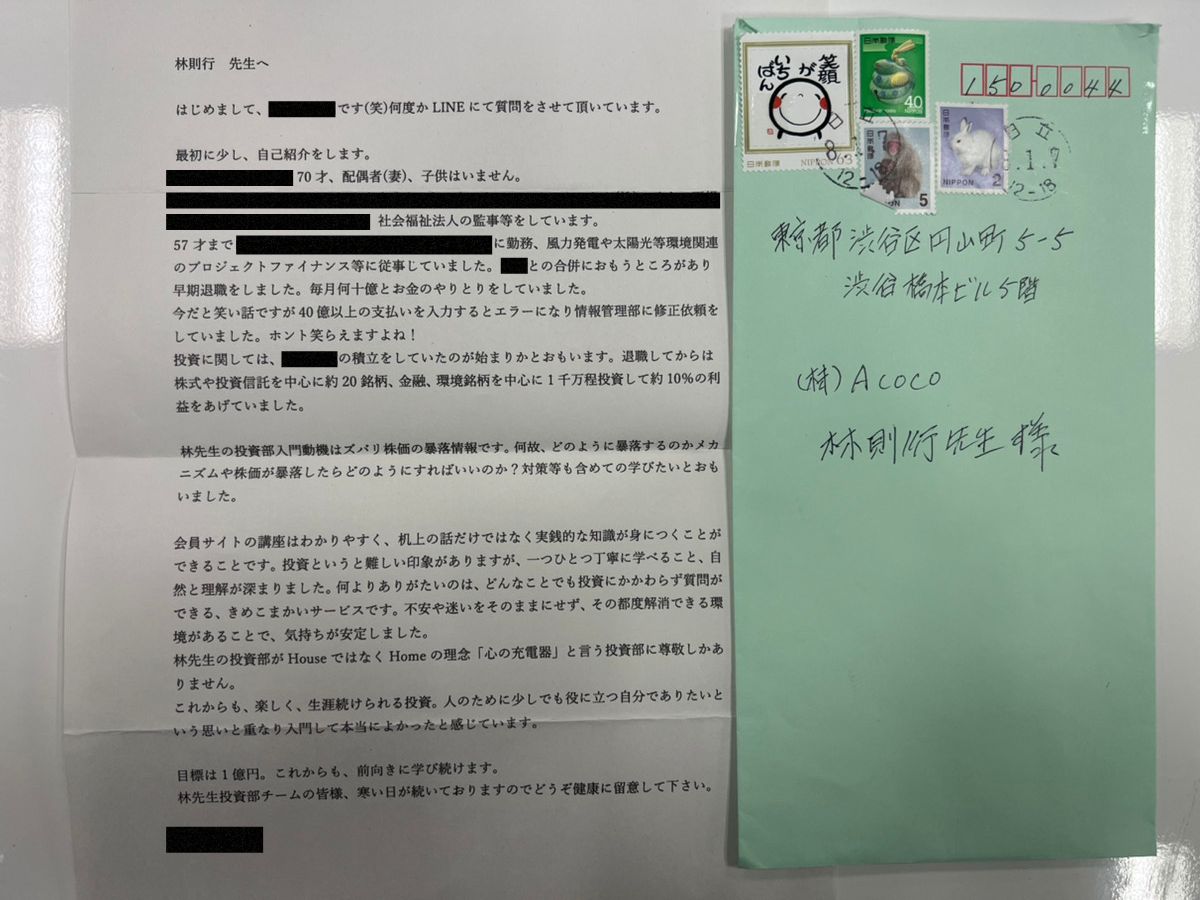 林則行　先生へ
はじめまして、です(笑)何度か LINE にて質問をさせて頂いています。
最初に少し、自己紹介をします。
70 才、配偶者(妻)、子供はいません。
社会福祉法人の監事等をしています。
57 才までに勤務、風力発電や太陽光等環境関連
のプロジェクトファイナンス等に従事していました。との合併におもうところがあり
早期退職をしました。毎月何十億とお金のやりとりをしていました。
今だと笑い話ですが 40 億以上の支払いを入力するとエラーになり情報管理部に修正依頼を
していました。ホント笑らえますよね！
投資に関しては、の積立をしていたのが始まりかとおもいます。退職してからは
株式や投資信託を中心に約 20 銘柄、金融、環境銘柄を中心に 1 千万程投資して約 10%の利
益をあげていました。
林先生の投資部入門動機はズバリ株価の暴落情報です。何故、どのように暴落するのかメカ
ニズムや株価が暴落したらどのようにすればいいのか？対策等も含めての学びたいとおも
いました。
会員サイトの講座はわかりやすく、机上の話だけではなく実践的な知識が身につくことが
できることです。投資というと難しい印象がありますが、一つひとつ丁寧に学べること、自
然と理解が深まりました。何よりありがたいのは、どんなことでも投資にかかわらず質問が
できる、きめこまかいサービスです。不安や迷いをそのままにせず、その都度解消できる環
境があることで、気持ちが安定しました。
林先生の投資部が House ではなく Home の理念「心の充電器」と言う投資部に尊敬しかあ
りません。
これからも、楽しく、生涯続けられる投資。人のために少しでも役に立つ自分でありたいと
いう思いと重なり入門して本当によかったと感じています。
目標は 1 億円。これからも、前向きに学び続けます。
林先生投資部チームの皆様、寒い日が続いておりますのでどうぞ健康に留意して下さい。
笑顔
が
いち
ばん
日本郵便
NIPPON 63
日本郵便
40
NIPPON
日本郵便
5
日本郵便
NIPPON 2
日立
8.1.7
12-18
150-0044
東京都渋谷区円山町5-5
渋谷橋本ビル5階
(株)Acoco
林則行先生様